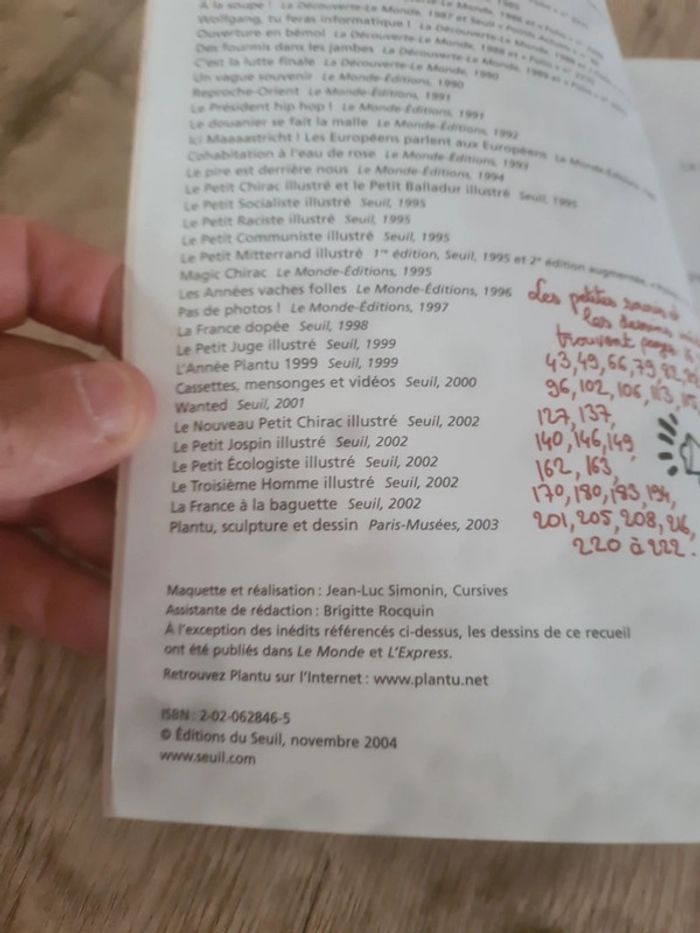 À la soupe ! La Découverte-Le Monde, 1987 et
Wolfgang, tu feras informatique ! La Découverte-Le Monde, 1988 et
Ouverture en bémol La Découverte-Le Monde, 1988 et « Folio » n°
Des fourmis dans les jambes La Découverte-Le Monde, 1989 et « Folio » n°
C'est la lutte finale La Découverte-Le Monde, 1990
Un vague souvenir Le Monde-Éditions, 1990
Reproche-Orient Le Monde-Éditions, 1991
Le Président hip hop ! Le Monde-Éditions, 1991
Le douanier se fait la malle Le Monde-Éditions, 1992
Ici Maaaastricht ! Les Européens parlent aux Européens Le Monde-Éditions,
Cohabitation à l'eau de rose Le Monde-Éditions, 1993
Le pire est derrière nous Le Monde-Éditions, 1994
Le Petit Chirac illustré et le Petit Balladur illustré Seuil, 1995
Le Petit Socialiste illustré Seuil, 1995
Le Petit Raciste illustré Seuil, 1995
Le Petit Communiste illustré Seuil, 1995
Le Petit Mitterrand illustré 1re édition, Seuil, 1995 et 2e édition augmentée,
Magic Chirac Le Monde-Éditions, 1995
Les Années vaches folles Le Monde-Éditions, 1996
Pas de photos ! Le Monde-Éditions, 1997
La France dopée Seuil, 1998
Le Petit Juge illustré Seuil, 1999
L'Année Plantu 1999 Seuil, 1999
Cassettes, mensonges et vidéos Seuil, 2000
Wanted Seuil, 2001
Le Nouveau Petit Chirac illustré Seuil, 2002
Le Petit Jospin illustré Seuil, 2002
Le Petit Écologiste illustré Seuil, 2002
Le Troisième Homme illustré Seuil, 2002
La France à la baguette Seuil, 2002
Plantu, sculpture et dessin Paris-Musées, 2003
Les petites souris
les dessins
trouvent pages
43,49,66,79,82,
96,102,106,113,115
127,137,
140,146,149,
162,163,
170,180,183,194,
201,205,208,216,
220 à 222.
Maquette et réalisation : Jean-Luc Simonin, Cursives
Assistante de rédaction : Brigitte Rocquin
À l'exception des inédits référencés ci-dessus, les dessins de ce recueil
ont été publiés dans Le Monde et L'Express.
Retrouvez Plantu sur l'Internet : www.plantu.net
ISBN : 2-02-062846-5
© Éditions du Seuil, novembre 2004
www.seuil.com